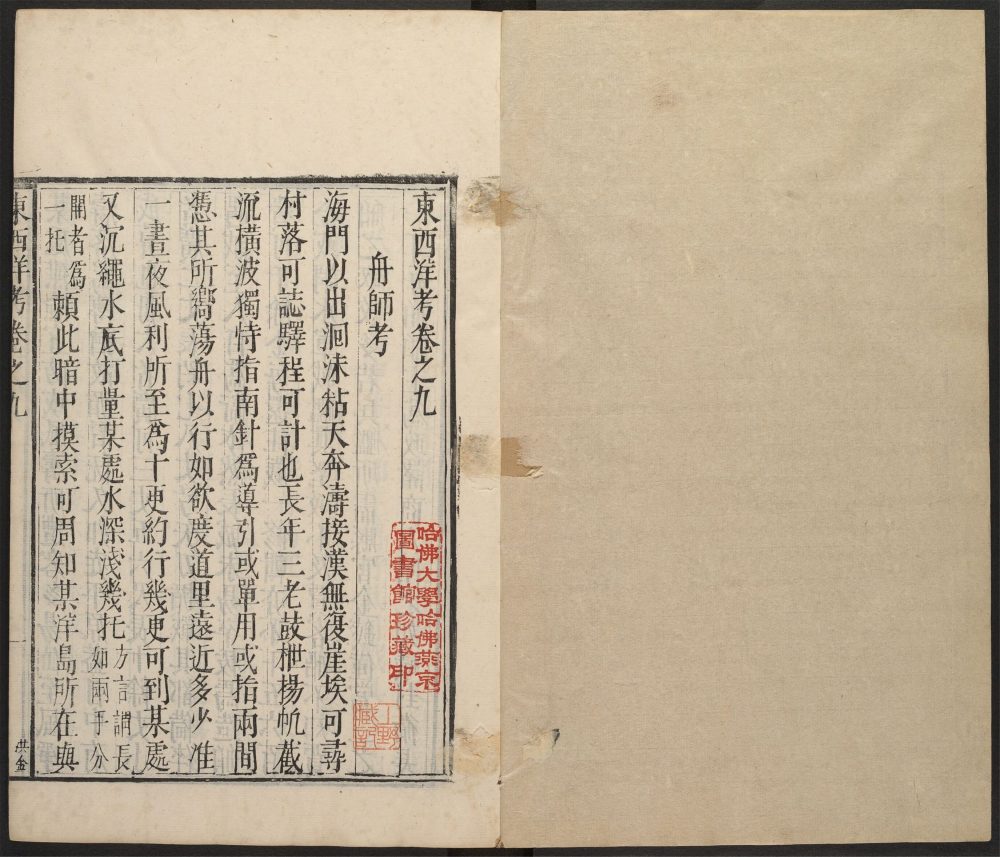 東西洋考卷之九
舟師考
海門以出洄沫粘天奔濤接漢無復崖埃可尋
村落可誌驛程可計也長年三老鼓枻揚帆截
流橫波獨恃指南針爲導引或單用或指兩間
憑其所嚮蕩舟以行如欲度道里遠近多少准
一晝夜風利所至爲十更約行幾更可到某處
又沉繩水底打量某處水深淺幾托方言謂長如兩手分
開者爲一托賴此暗中摸索可周知某洋島所在與
東西洋考卷之九
一
洪金
哈佛大學哈佛燕京
圖書館珍藏印